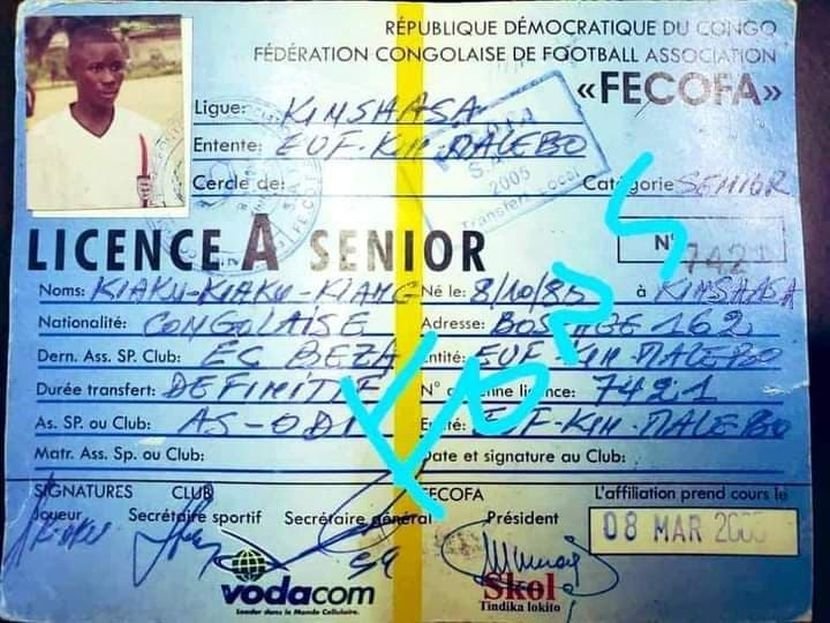 RÉPUBLIQUE DÉMOCRATIQUE DU CONGO
FÉDÉRATION CONGOLAISE DE FOOTBALL ASSOCIATION
«FECOFA»
Ligue: KINSHASA
Entente: EUF-KIN-MALEBO
2005
Transfert Local
Cercle de: Catégorie SENIOR
LICENCE A SENIOR
N° 7421
Noms: KIAKU-KIAKU-KIANG Né le: 8/10/85 à KINSHASA
Nationalité: CONGOLAISE Adresse: 162
Dern. Ass. SP. Club: EC BEZA Entité: EUF-KIN-MALEBO
Durée transfert: DEFINITIF N° licence: 7421
As. SP. ou Club: AS-ODI Entité: EUF-KIN-MALEBO
Matr. Ass. Sp. ou Club: Date et signature au Club:
SIGNATURES CLUB FECOFA L'affiliation prend cours le
Joueur Secrétaire sportif Secrétaire général Président 08 MAR
vodacom
Leader dans le Monde Cellulaire.
Skol
Tindika lokito